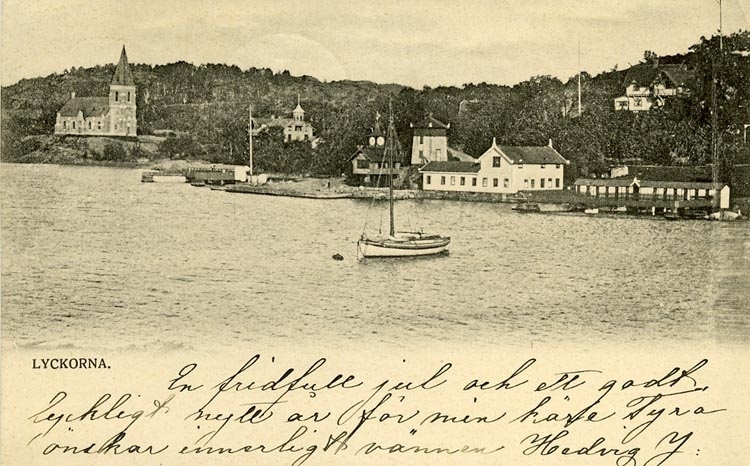 LYCKORNA.
En fridfull jul och ett godt,
lyckligt nytt år för min kära Tyra
önskar innerligt vännen Hedvig Y: